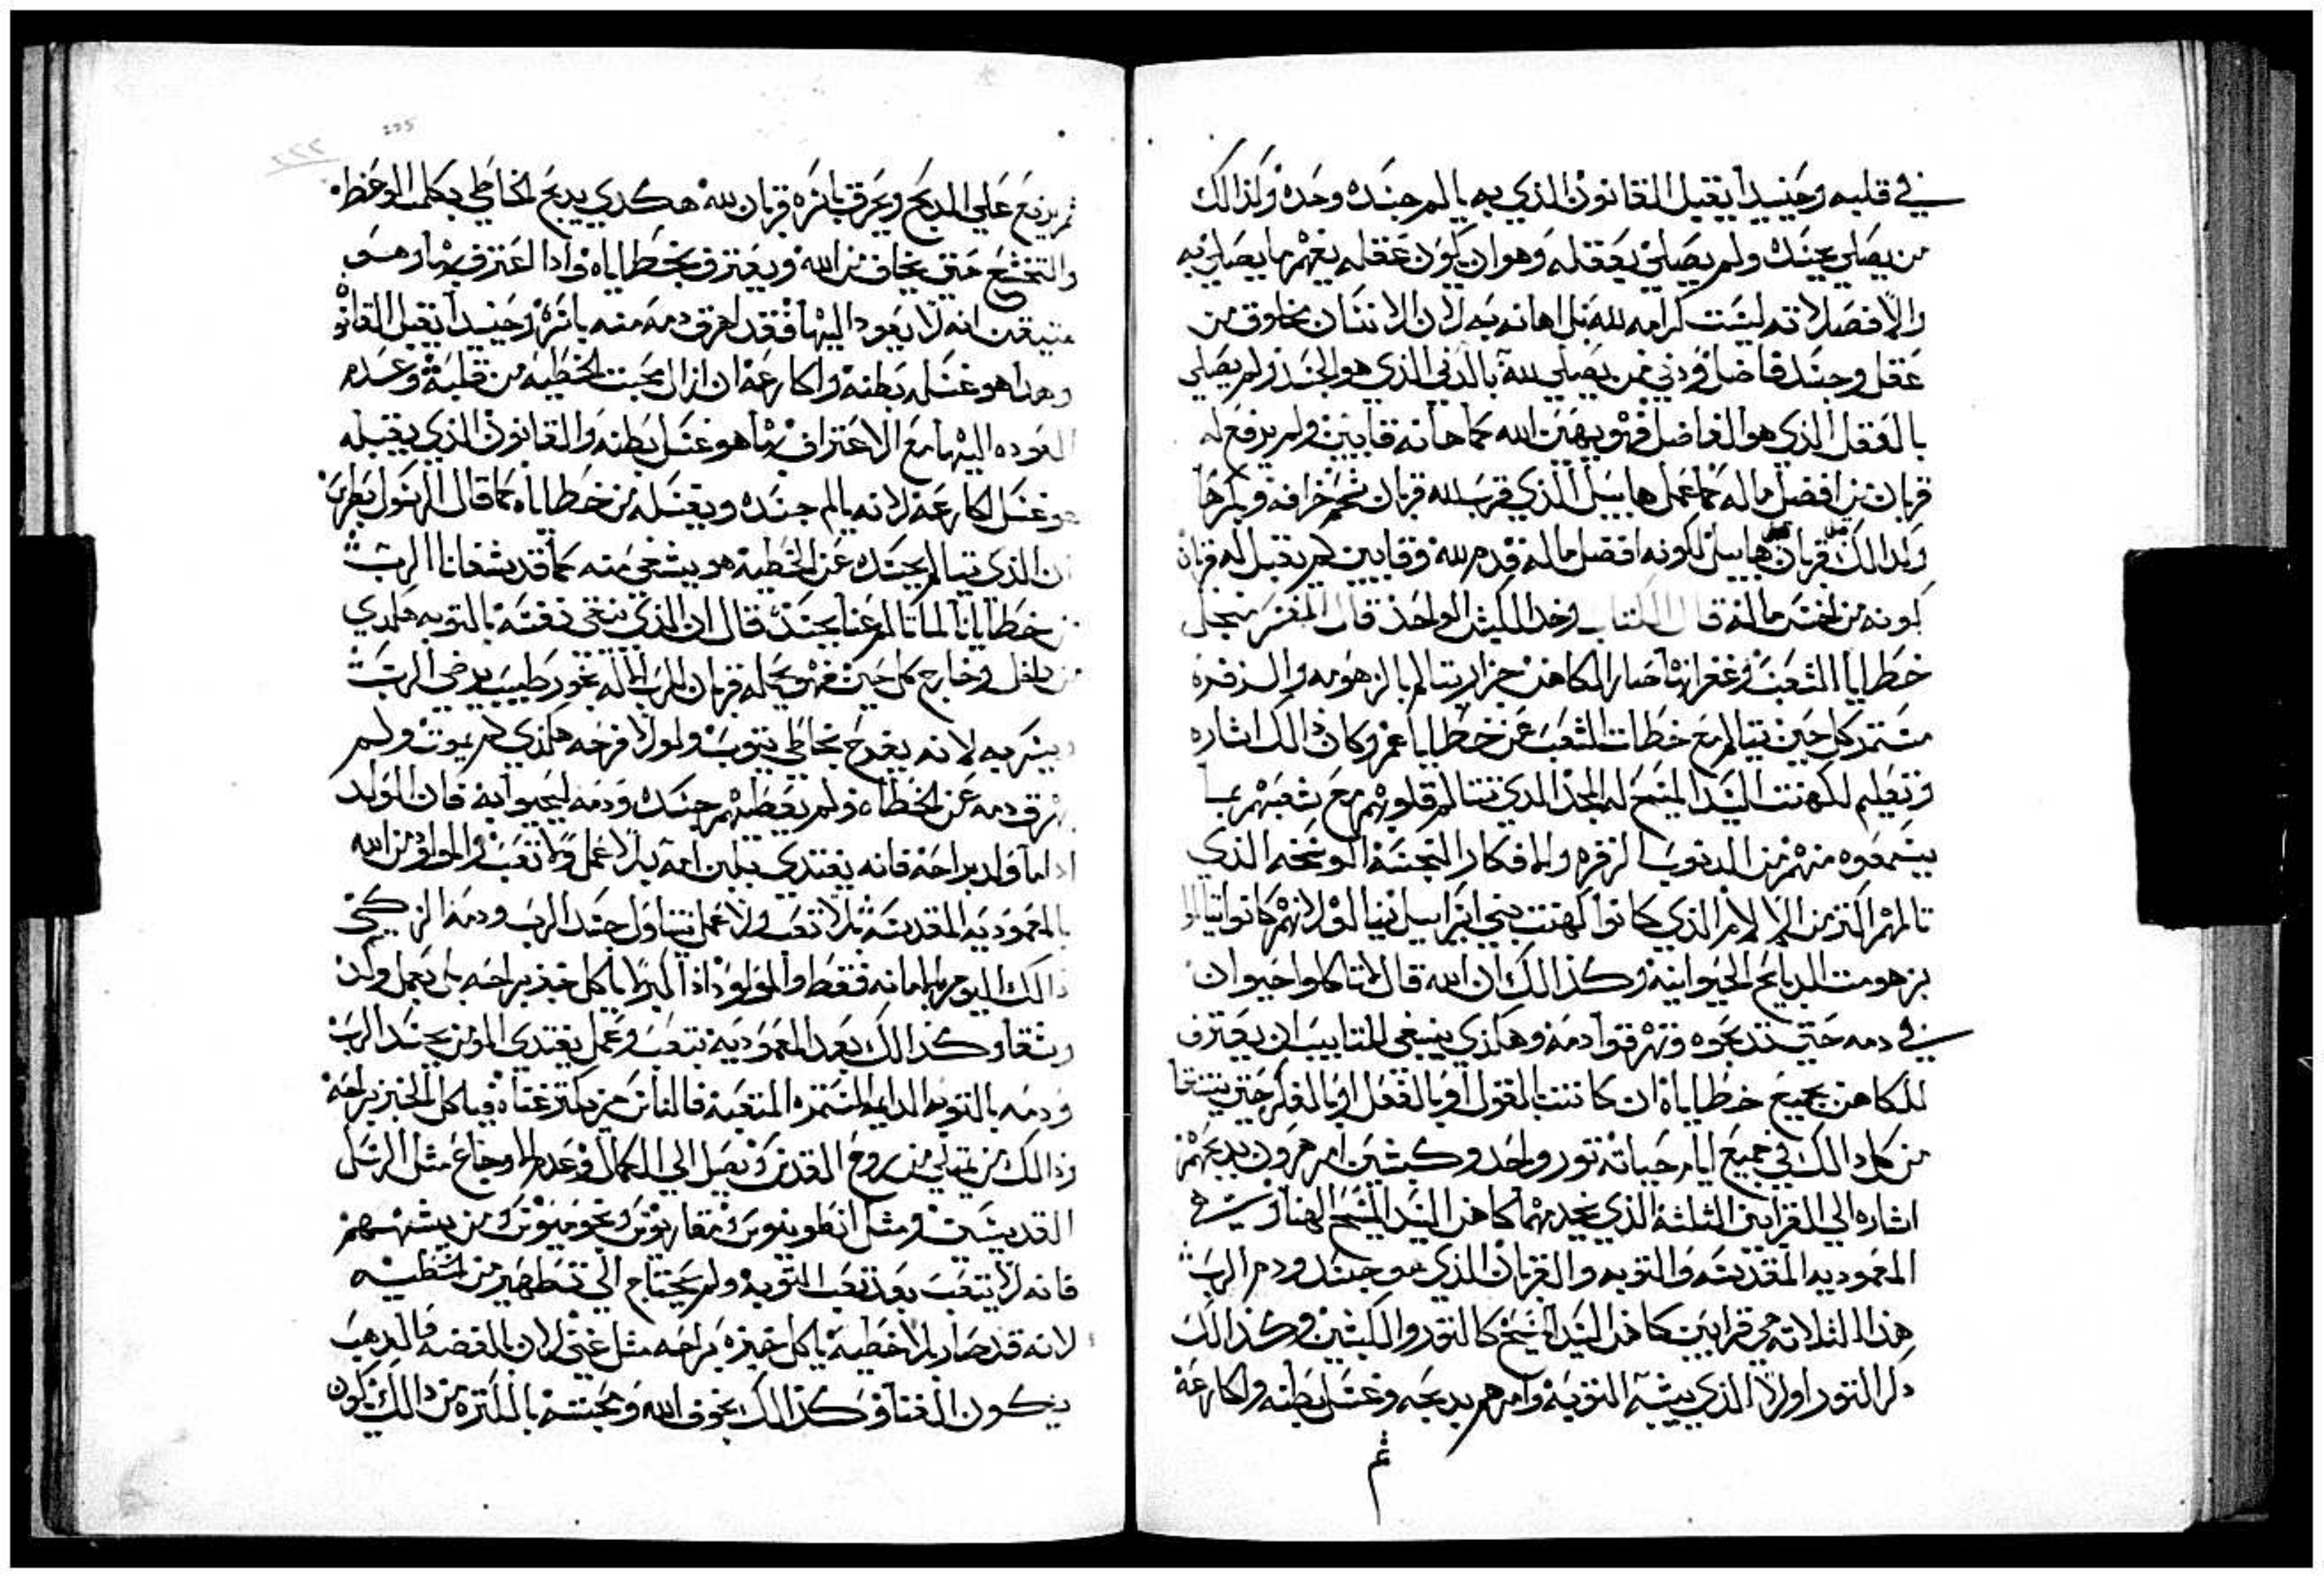 في قلبه وحنيدا يقبل القانون الذي به يالم جسده وحده وكذالك
من يصلي بجسده ولم يصلي بعقله وهو ان يكون عقله يفهم ما يصلي به
والا فصلاته ليست كرامه لله بل اهانه به لان الانسان مخلوق من
عقل وجسد فاضل ودني فمن يصلي لله بالدني الذي هو الجسد ولم يصلي
بالعقل الذي هو الفاضل فهو يهين الله كما هانه قايين ولم يرفع له
قربان من افضل ماله كما عمل هابيل الذي قرب لله قربان شحم خرافه وبكرها
ولذالك قربان هابيل لكونه افضل ماله قدم لله وقايين لم يقبل له قربان
لكونه من اخس ماله قال الكتاب وخد الكبش الواحد قال المفسر من اجل
خطايا الشعب وغفرانها صار الكاهن جزار يتالم بالزهومه والزفره
مستمر كل حين يتالم مع خطات الشعب عن خطاياهم وكان ذالك اشاره
وتعليم لكهنت السيد المسيح له المجد الذي تتالم قلوبهم مع شعبهم بما
يسمعوه منهم من الدنوب الزفره والافكار النجسه الوسخه الذي
تالمهم اكتر من الالام الذي كانوا كهنت بني اسراييل يتالموا لانهم كانوا يتالموا
بزهومت الدبايح الحيوانيه وكذالك ان الله قال لا تاكلوا حيوان
في دمه حتى تدبحوه وتهرقوا دمه وهكذي ينبغي للتايب ان يعترف
للكاهن بجميع خطاياه ان كانت بالقول او بالفعل او بالفكر حتى يتنقا
من كل دالك في جميع ايام حياته تور واحد وكبشين امر هرون يدبحهم
اشاره الى القرابين الثلثه الذي يخدمها كاهن السيد المسيح الهنا وهي
المعموديه المقدسه والتوبه والقربان الذي هو جسد ودم الرب
هذا الثلاته هي قرابين كاهن السيد المسيح كالتور والكبشين وكذالك
دكر التور اولا الذي يشبه التوبه وامرهم بدبحه وغسل بطنه واكارعه
ثم
225
٢٢٢
ثم يرفع على المدبح ويحرق باسره قربان لله هكدي يدبح الخاطي بكلمت الوعظه
والتخشع حتى يخاف من الله ويعترف بخطاياه وادا اعترف بها وهو
متيقن انه لا يعود اليها فقد اهرق دمه منه باسره وحنيدا يقبل القانون
وهدا هو غسل بطنه واكارعه ان ازال محبت الخطيه من قلبه وعدم
العوده اليها مع الاعتراف بها هو غسل بطنه والقانون الذي يقبله
هو غسل اكارعه لانه يالم جسده ويغسله من خطاياه كما قال الرسول بطرس
ان الذي يتالم بجسده عن الخطيه هو يشفى منه كما قد يشفانا الرب
من خطايانا لما تالم عنا بجسده قال ان الذي ينقى نفسه بالتوبه هكدي
من داخل وخارج كل حين فهو يجعله قربان للرب الاله بخور طيب يرضي الرب
ويسر به لانه يفرح بخاطي يتوب ولولا فرحه هكذي لم يموت ولم
يهرق دمه عن الخطاه ولم يعطيهم جسده ودمه ليحيوا به فان الولد
اداما ولد براحه فانه يغتدي بلبن امه بلا عمل ولا تعب والمولود من الله
بالمعموديه المقدسه بلا تعب ولا عمل يتناول جسد الرب ودمه الزكي
ذالك اليوم بالامانه فقط والمولود اذا كبر لا ياكل خبز براحه بل بعمل وكد
وشقا وكذالك بعد المعموديه بتعب وعمل يغتدي المومن بجسد الرب
ودمه بالتوبه الدايمه المستمره المتعبه فالناس من يكتر غناه فياكل الخبز براحه
وذالك من يمتلي من روح القدس ويصل الى الكمال وعدم الاوجاع مثل الرسل
القديسين ومثل انطونيوس ومقاريوس وبخوميوس ومن يشبههم
فانه لا يتعب بعد تعب التوبه ولم يحتاج الى تطهير من الخطيه
لانه قد صار بلا خطيه ياكل خبزه براحه مثل غني لان بالفضه والدهب
يكون الغنا وكذالك بخوف الله ومحبته بالكتره من دالك يكون